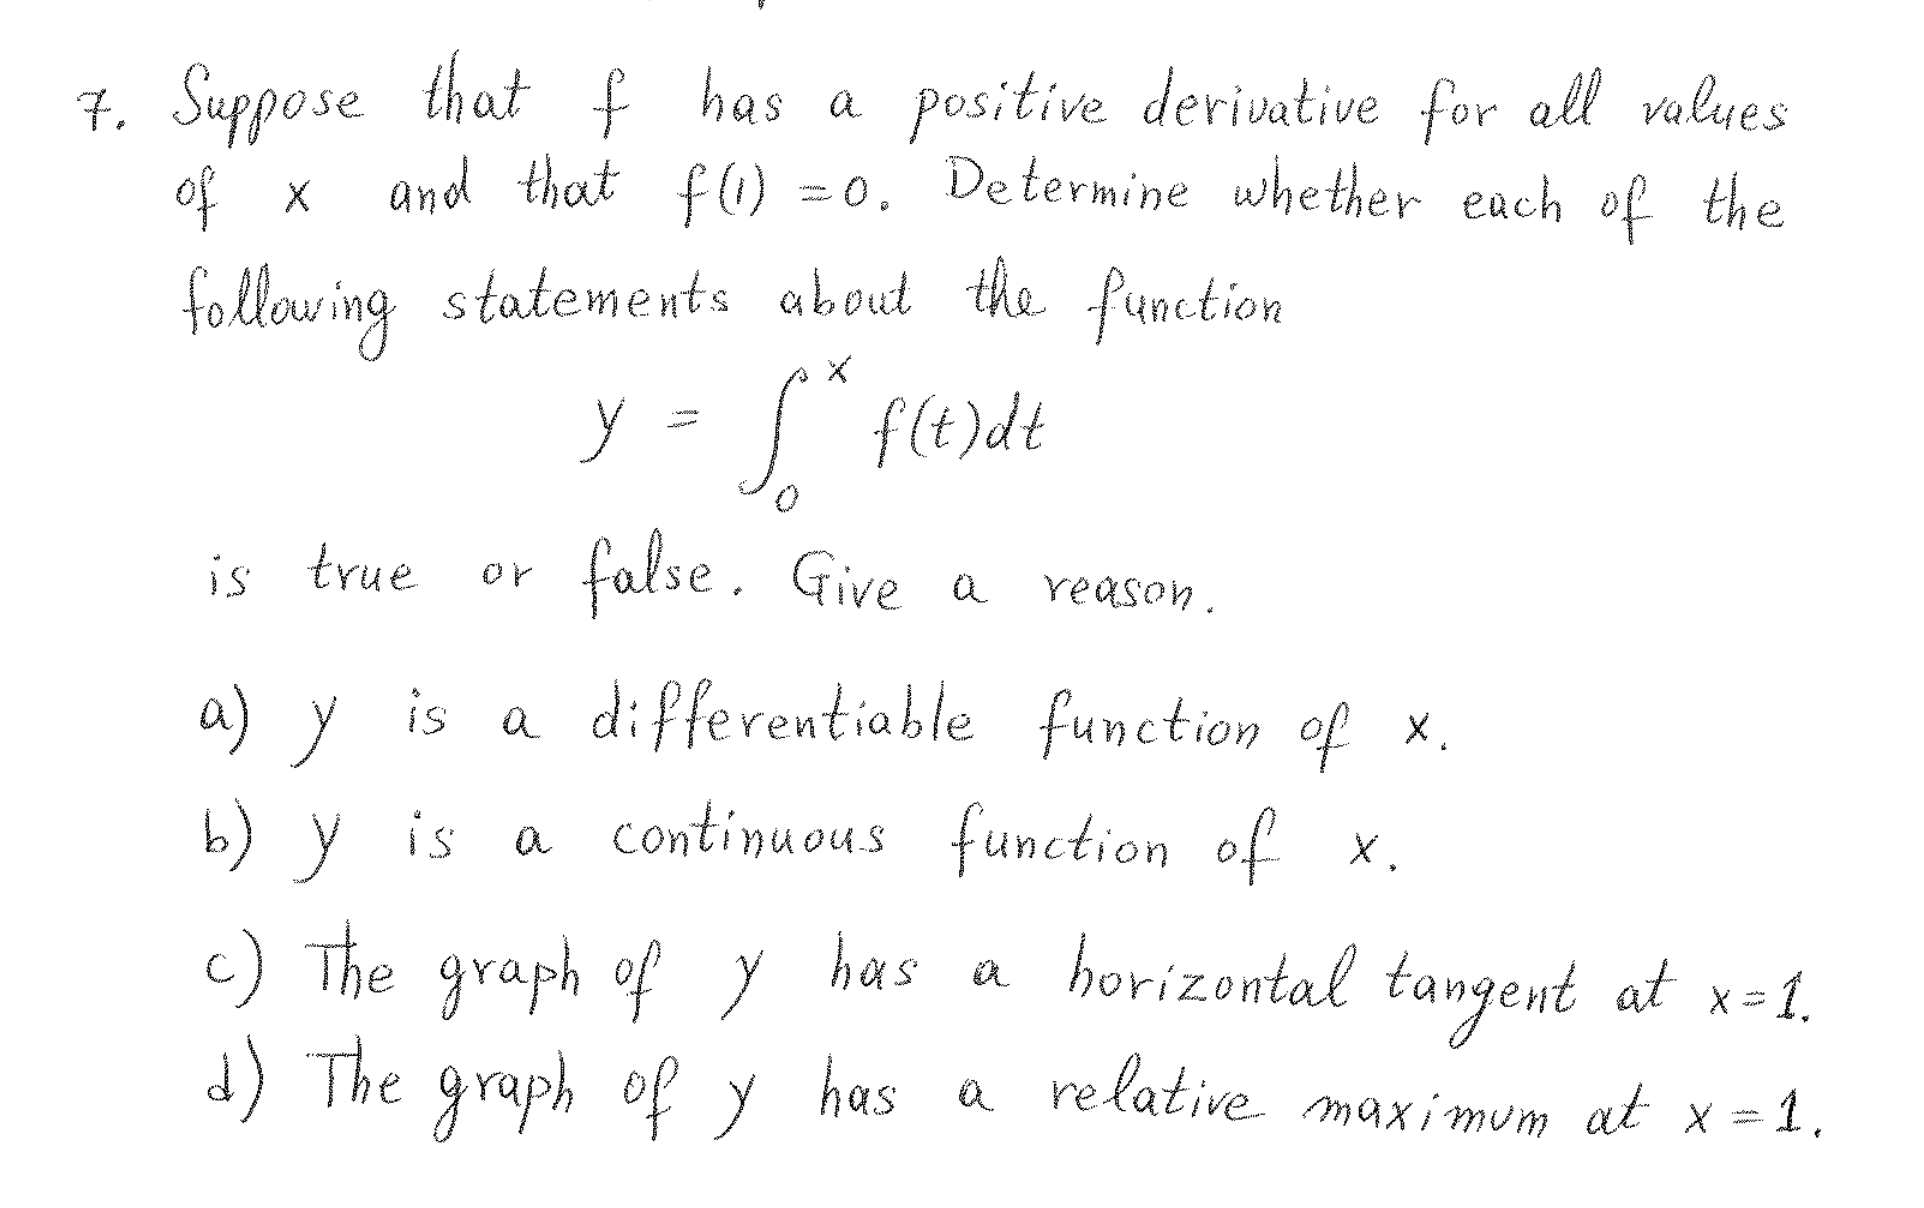 7. Suppose that f has a positive derivative for all values
of x and that f(1) = 0. Determine whether each of the
following statements about the function
y = ∫₀ˣ f(t)dt
is true or false. Give a reason.
a) y is a differentiable function of x.
b) y is a continuous function of x.
c) The graph of y has a horizontal tangent at x=1.
d) The graph of y has a relative maximum at x=1.